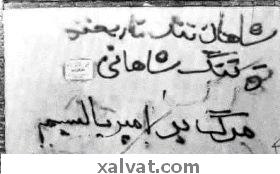 شاهان ننگ تاریخند
ننگ شاهانی
مرگ بر امپریالیسم
xalvat.com